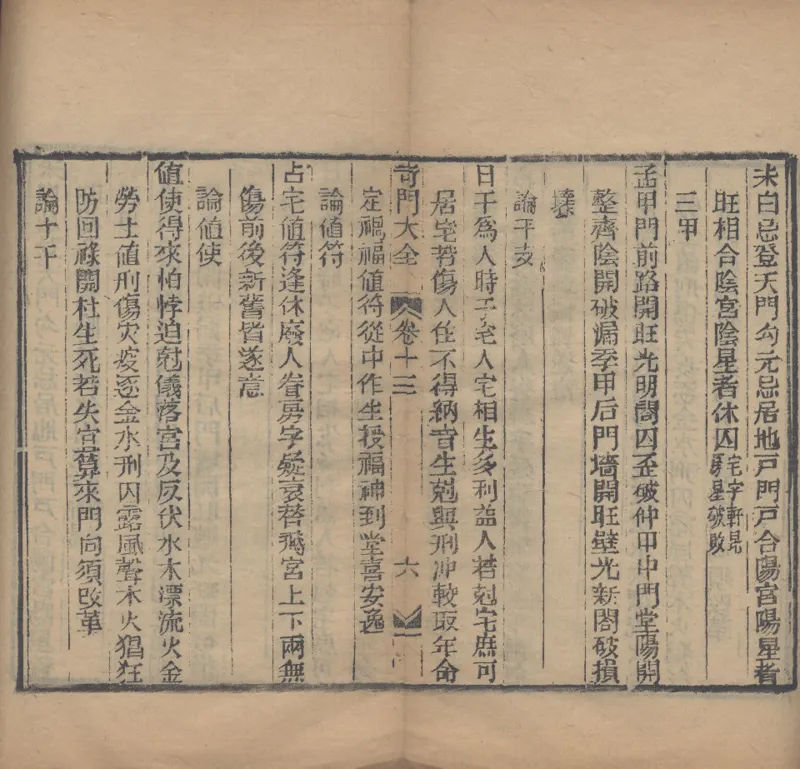 朱白忌登天門勾元忌居地戸門戸合陽宮陽星者
旺相合陰宮陰星者休囚宅字軒昆房星破敗
三甲
孟甲門前路開旺光明閣囚歪破仲甲中門堂陽開
整齊陰開破漏季甲后門墻開旺壁光新閣破損
壊
論干支
日干為人時干宅人宅相生多利益人若尅宅庶可
居宅若傷人住不得納音生尅與刑冲較取年命
奇門大全 卷十三 六
定禍福值符從中作生授福神到堂喜安逸
論値符
占宅值符逢休廢人眷房字疑衰替飛宮上下兩無
傷前後新舊皆遂意
論値使
値使得來怕悖迫尅儀落宮及反伏水木漂流火金
勞土値刑傷灾疫逐金水刑囚露風聲木火猖狂
防回祿開杜生死若失宜算來門向須改革
論十干